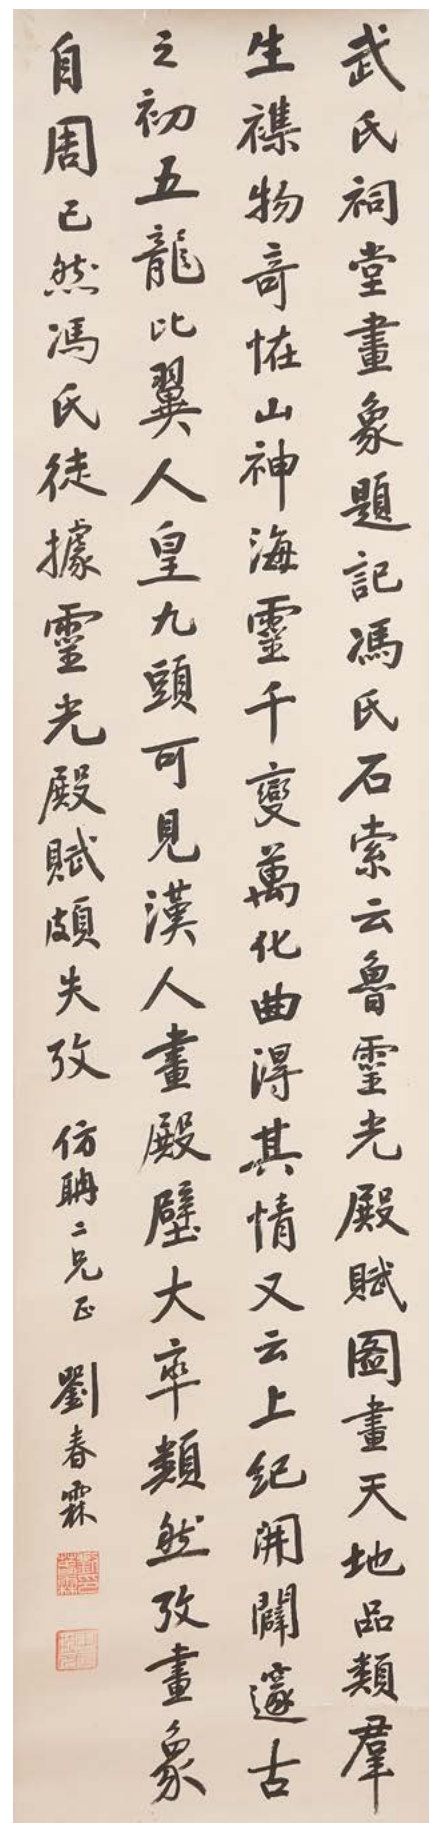 武氏祠堂畫象題記馮氏石索云魯靈光殿賦圖畫天地品類羣
生襍物奇恠山神海靈千變萬化曲得其情又云上紀開闢遂古
之初五龍比翼人皇九頭可見漢人畫殿壁大率類然攷畫象
自周已然馮氏徒據靈光殿賦頗失攷
仿聃二兄正
劉春霖